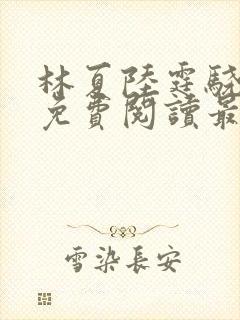 林夏陸霆驍
免費閱讀最
雪染長安